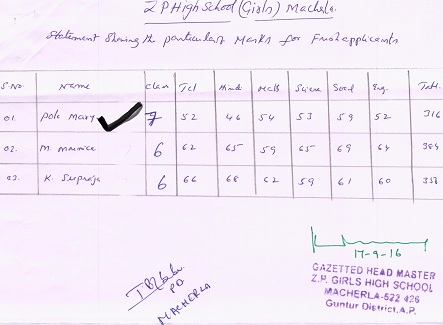 Z P High School (Girls) Macherla.
Statement showing the particulars Marks for Fresh applicants
S.No. Name Class Tel Hindi Maths Science Social Eng. Total
01. Pole Mary 7 52 46 54 53 59 52 316
02. M. 6 62 65 59 65 69 64 384
03. K. Supraja 6 66 68 62 59 61 60
17-9-16
GAZETTED HEAD MASTER
Z.P. GIRLS HIGH SCHOOL
MACHERLA-522 426
Guntur District. A.P.
PD
MACHERLA